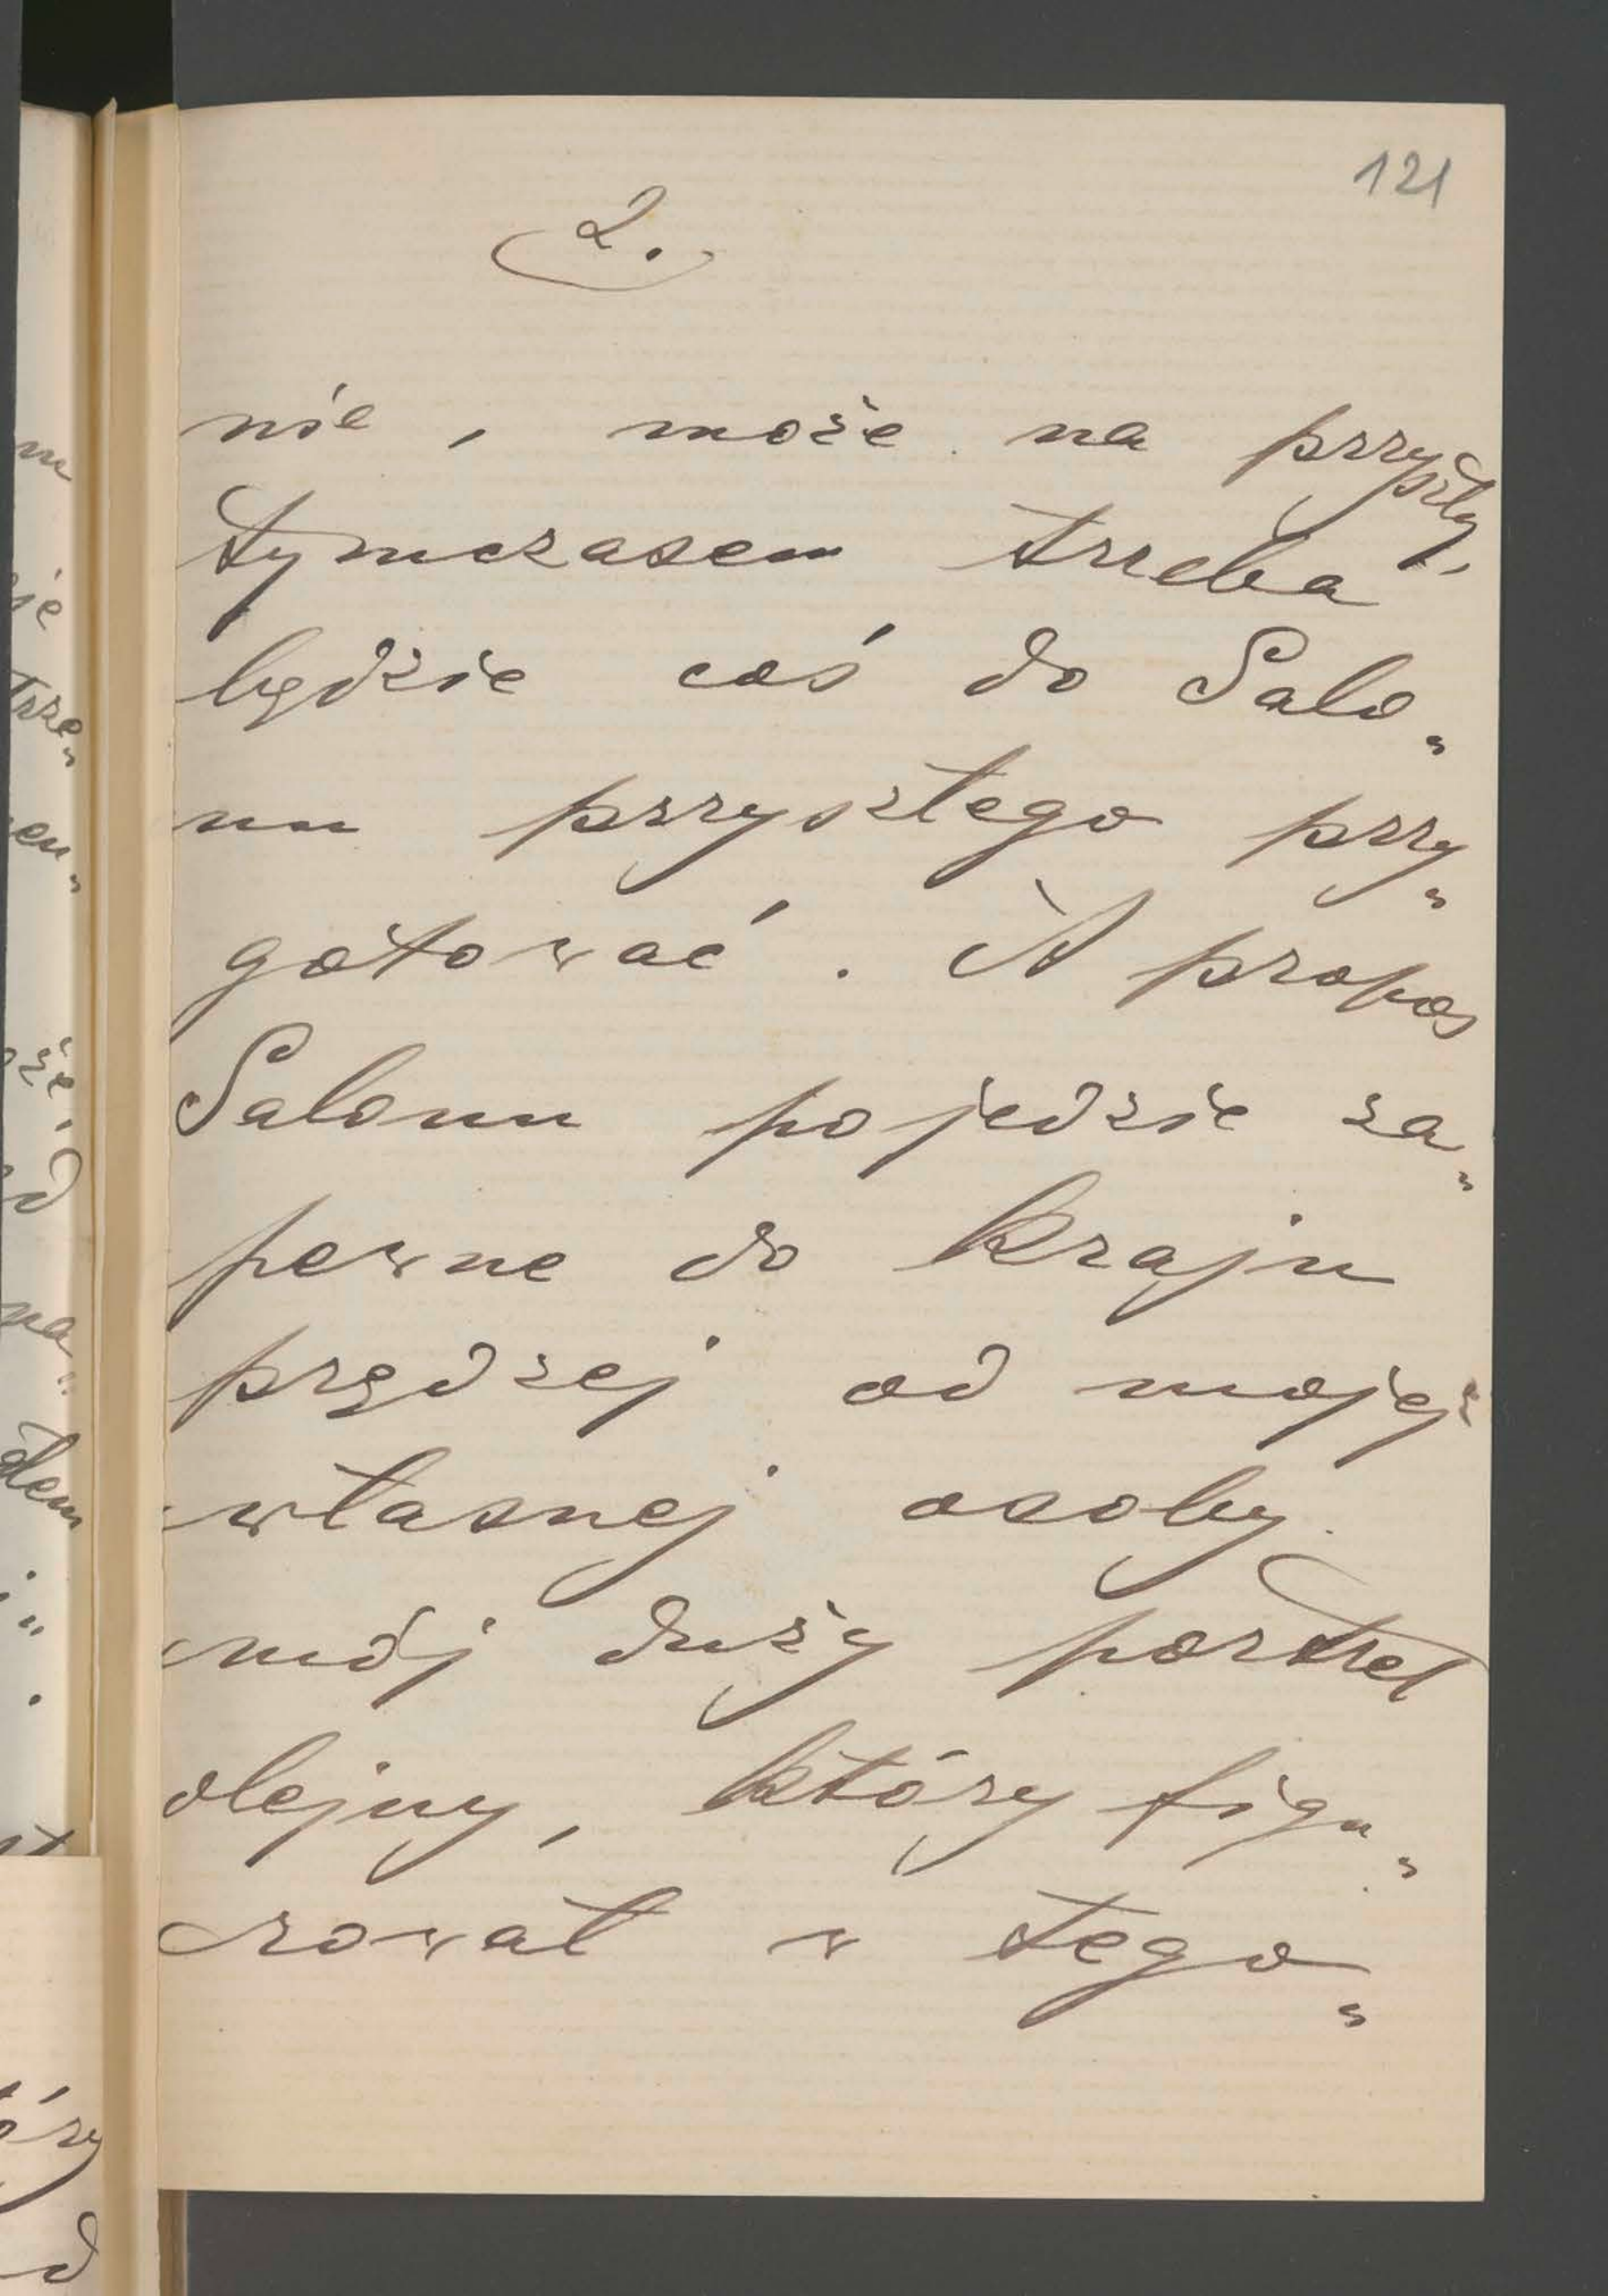 121
2.
nie, może na przyszły,
tymczasem trzeba
będzie coś do Salo„
nu przyszłego przy„
gotować. À propos
Salonu pojedzie za„
pewne do kraju
prędzej od mojej
własnej osoby.
mój duży portret
olejny, który figu„
rował w tego„